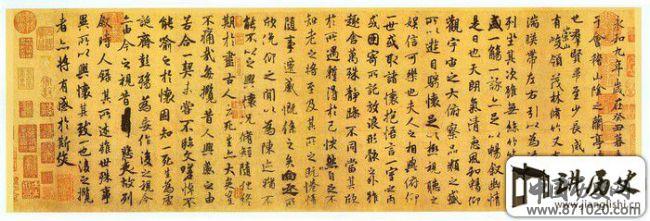 永和九年歲在癸丑暮春
于會稽山陰之蘭亭
也羣賢畢至少長咸集
崇山
有峻領茂林脩竹又有
湍暎帶左右引以為
列坐其次雖無絲竹
盛一觴一詠亦足以暢敘幽情
是日也天朗氣清惠風和暢仰
觀宇宙之大俯察品類之盛
所以遊目騁懷足以極視聽之
娛信可樂也夫人之相與俯仰
一世或取諸懷抱悟言一室之內
或因寄所託放浪形骸之外雖
趣舍萬殊靜躁不同當其欣
於所遇蹔得於己怏然自足不
知老之將至及其所之既惓情
隨事遷感慨係之矣向之所
欣俛仰之間以為陳迹猶不
能不以之興懷況脩短隨化終
期於盡古人云死生亦大矣豈
不痛哉每攬昔人興感之由
若合一契未嘗不臨文嗟悼不
能喻之於懷固知一死生為虛
誕齊彭殤為妄作後之視今
亦由今之視昔悲夫故列
敘時人錄其所述雖世殊事
異所以興懷其致一也後之攬
者亦將有感於斯文
讲历史
www.jianglishi.cn
www.871020.com